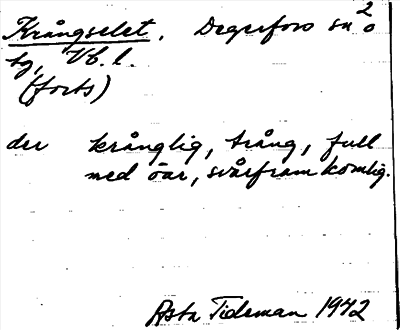 Krångselet. Degerfors sn 2
tg, Vb. l.
(forts)
der krånglig, trång, full
med öar, svårframkomlig.
Asta Tideman 1942